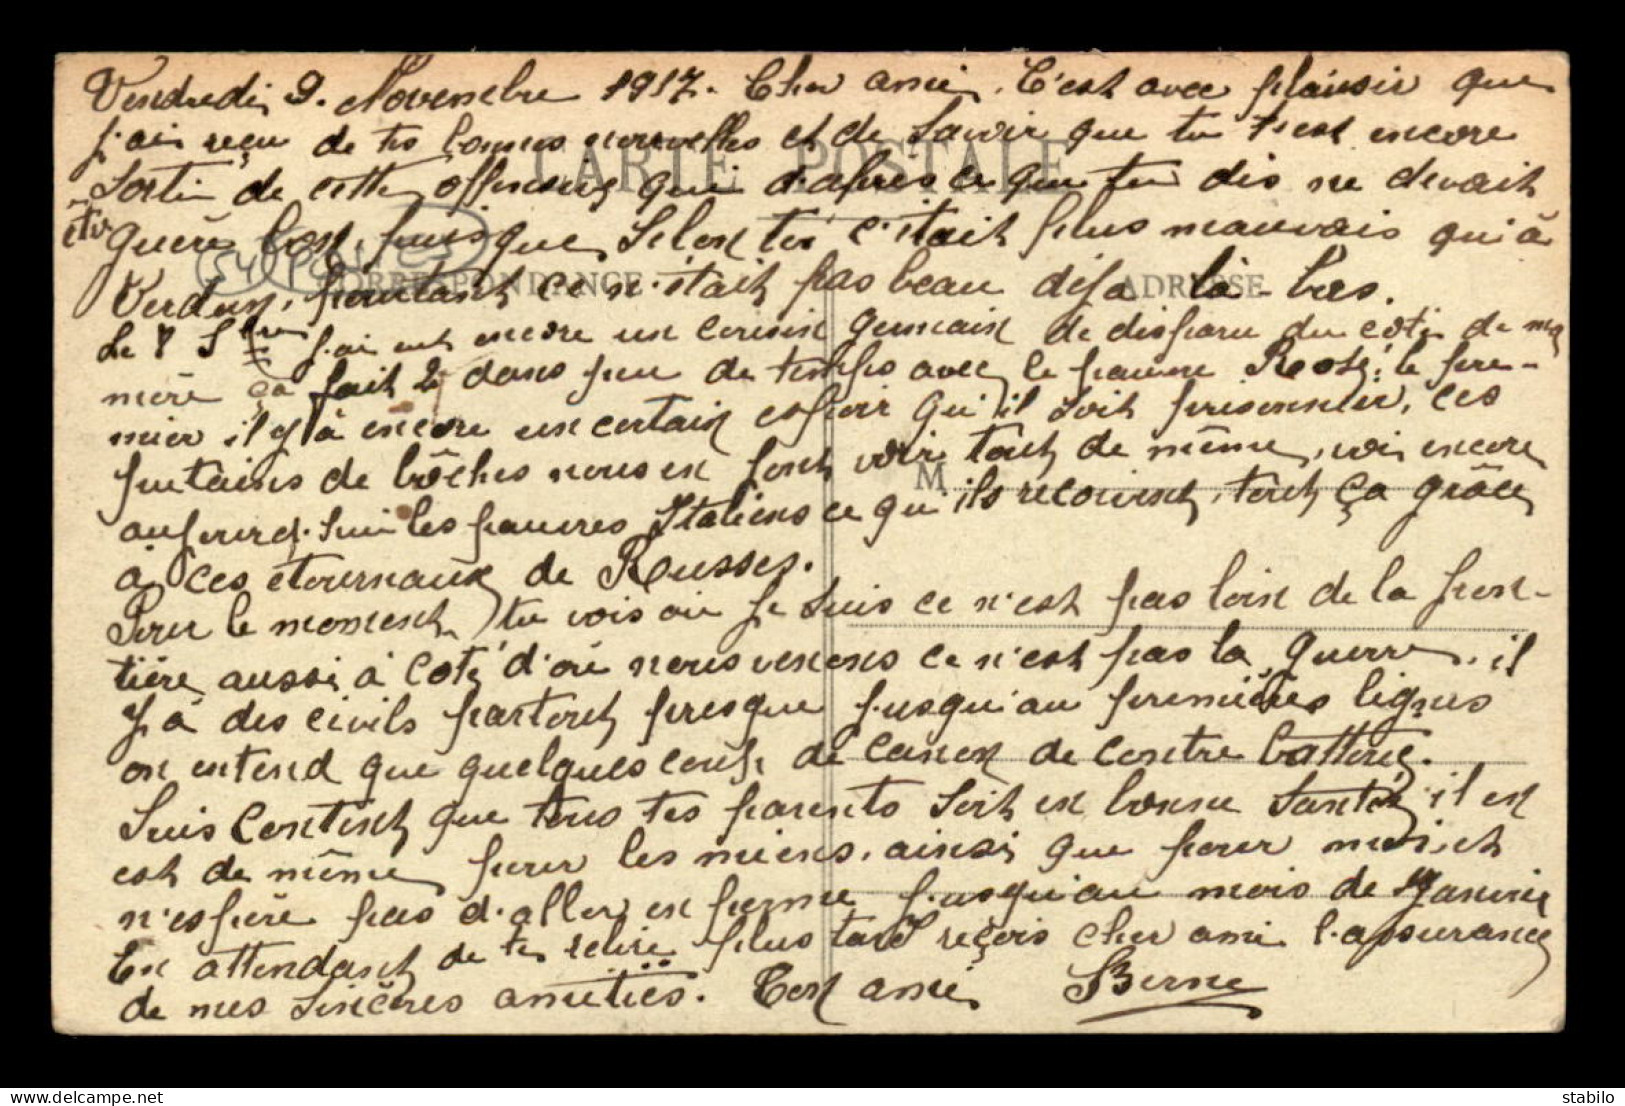 Vendredi 9. Novembre 1917. Cher ami. C'est avec plaisir que
j'ai reçu de tes bonnes nouvelles et de savoir que tu t'est encore
sorti de cette offensive qui d'après ce que tu dis ne devait
être
guère bon, puisque selon toi c'était plus mauvais qu'à
Verdun, pourtant ce n'était pas beau déja là-bas.
CARTE POSTALE
CORRESPONDANCE
ADRESSE
Le 8 j'ai eut encore un cousin germain de disparu du coté de ma
mère ça fait 2 dans peu de temps avec le pauvre le pre-
mier il y à encore un certain espoir qu'il soit prisonnier, ces
putains de bôches nous en font voir tout de même, voi encore
M
aujourd'hui les pauvres Italiens ce qu'ils recoivent, tout ça grâce
à ces étournaux de Russes.
Pour le moment tu vois où je suis ce n'est pas loin de la fron-
tière aussi à coté d'où nous venons ce n'est pas la guerre, il
y à des civils partout presque jusqu'au premières lignes
on entend que quelques coups de canon de contre batterie.
Suis content que tous tes parents soit en bonne santé, il en
est de même pour les miens, ainsi que pour moi, et
n'espère pas d'aller en perme jusqu'au mois de Janvier
En attendant de te relire plus tard reçois cher ami l'assurance
de mes sincères amitiés. Ton ami Berne
delcampe.net
stabilo